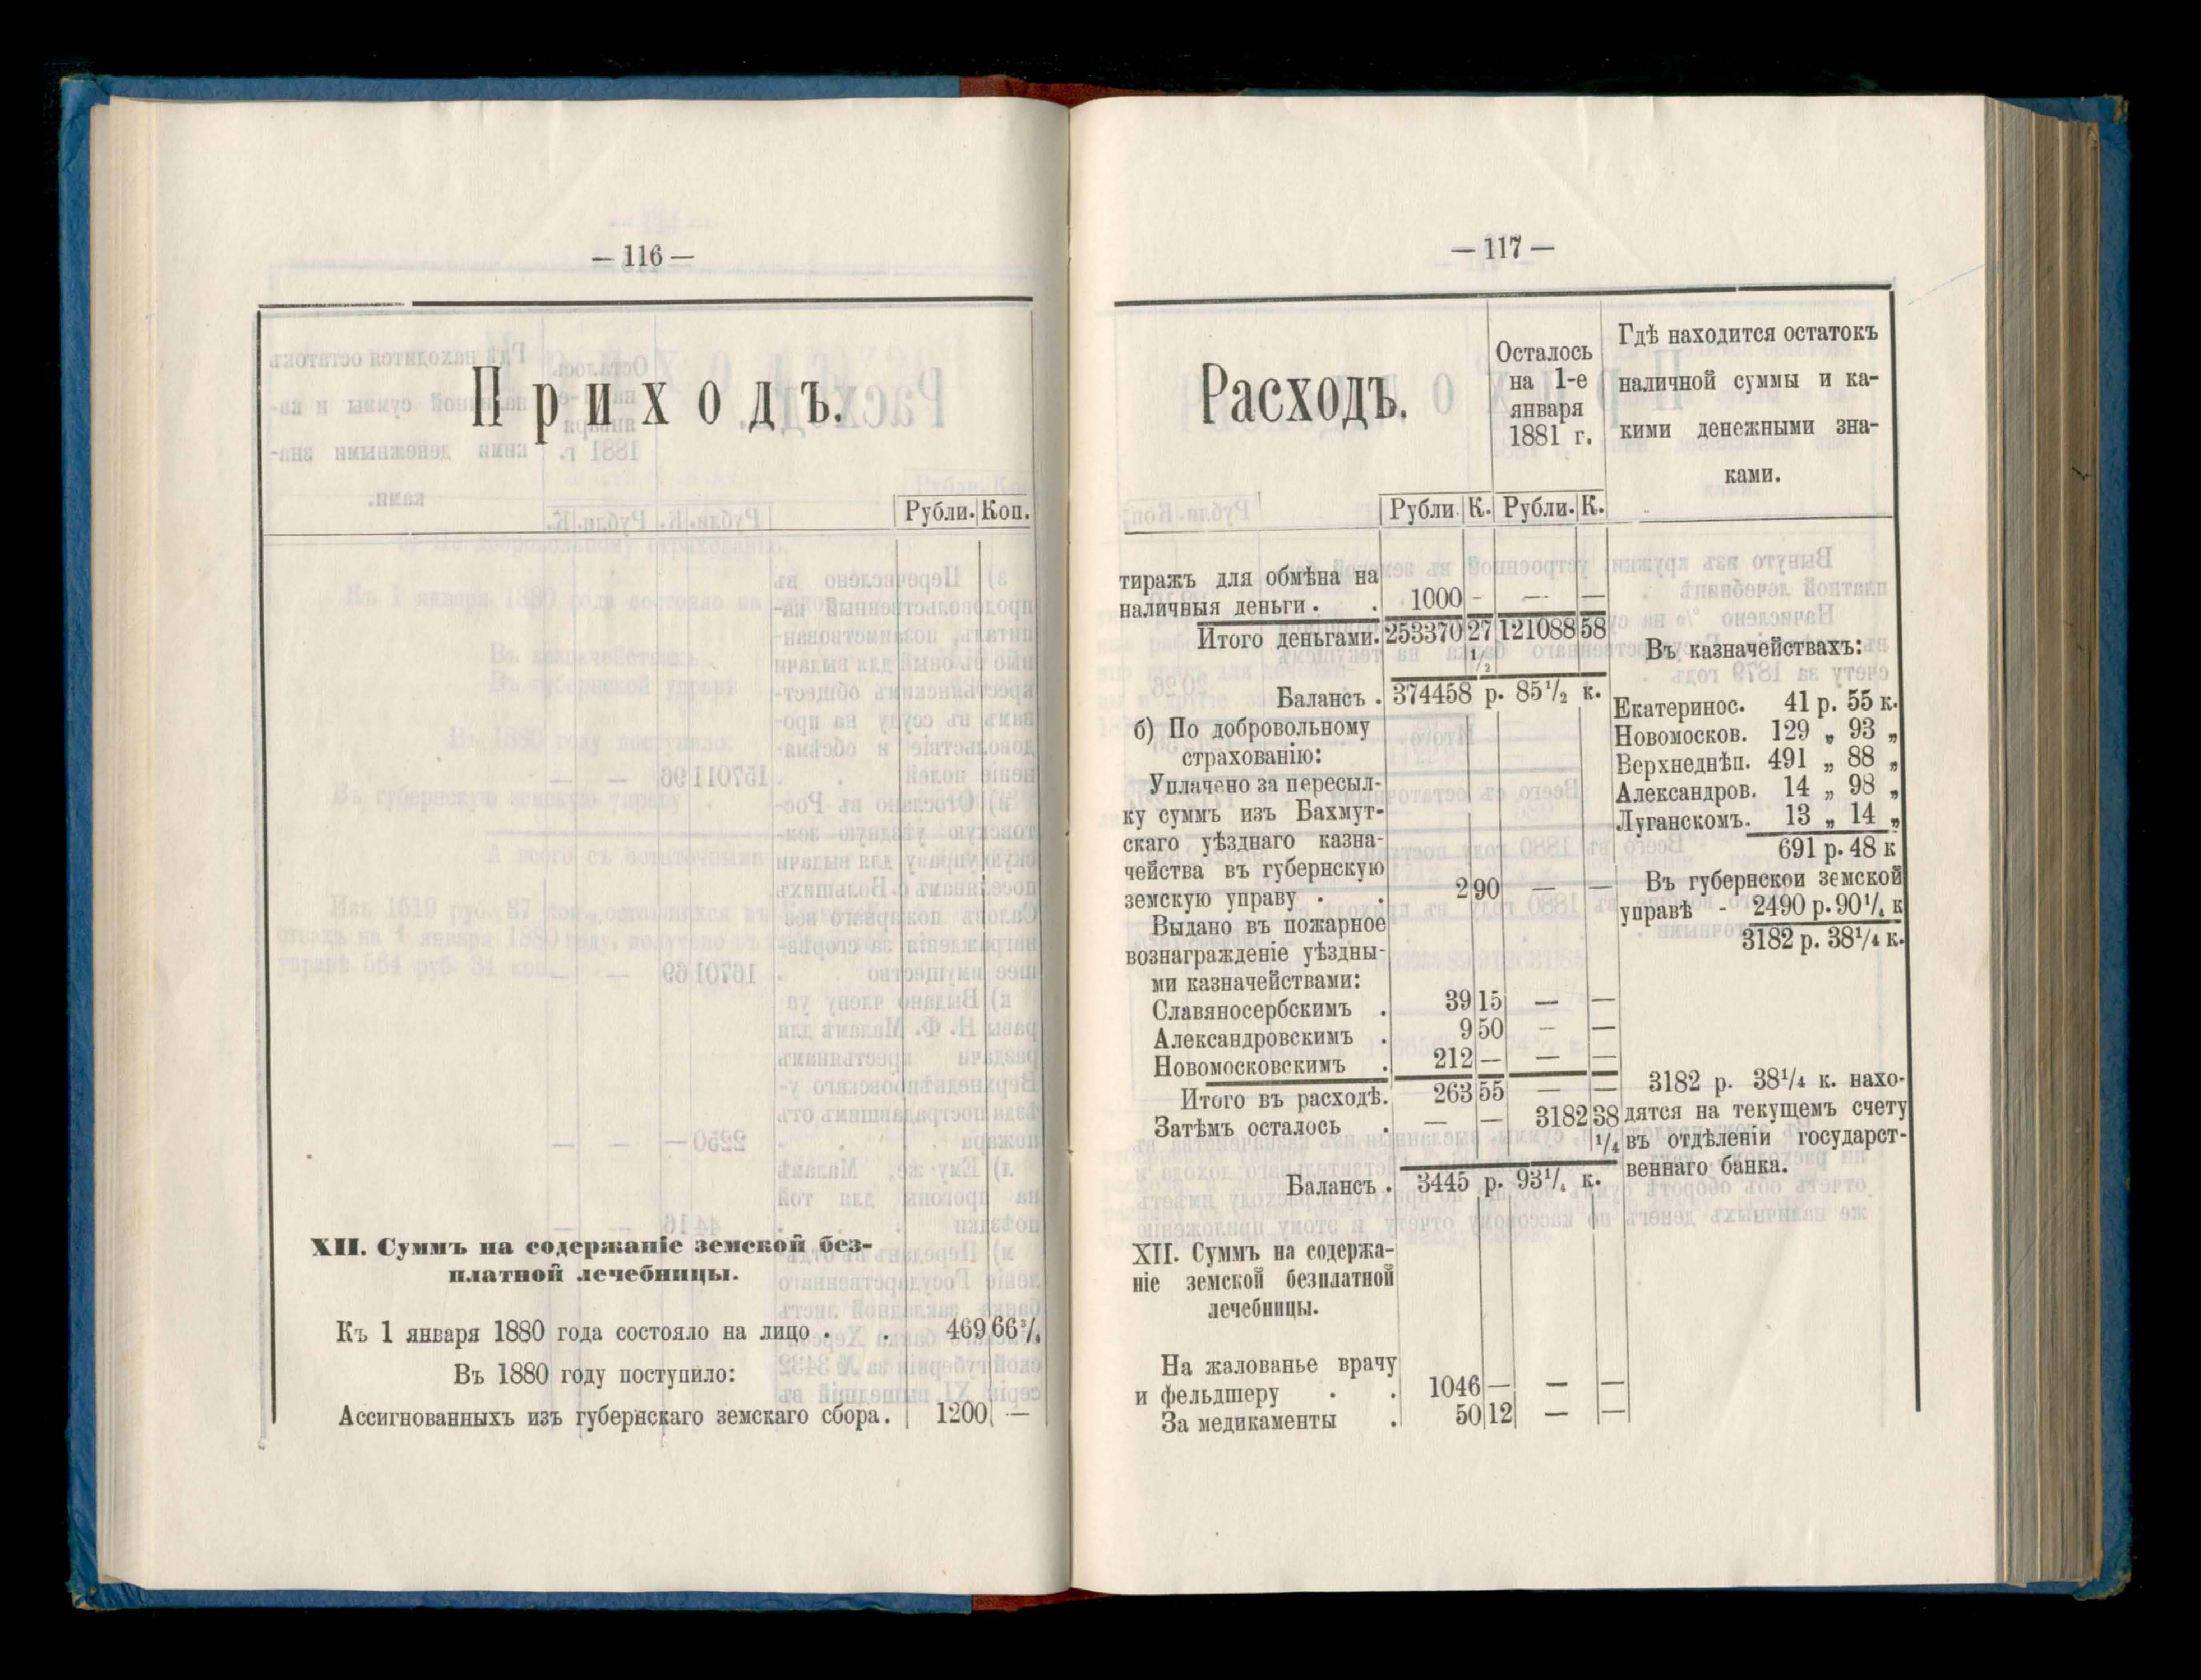 — 116 —
Приходъ.
Рубли. Коп.
XII. Суммъ на содержаніе земской без-
платной лечебницы.
Къ 1 января 1880 года состояло на лицо . . 469 66³/₄
Въ 1880 году поступило:
Ассигнованныхъ изъ губернскаго земскаго сбора. 1200 —
— 117 —
Расходъ.
Осталось
на 1-е
января
1881 г.
Гдѣ находится остатокъ
наличной суммы и ка-
кими денежными зна-
ками.
Рубли. К. Рубли. К.
тиражъ для обмѣна на
наличныя деньги . . 1000 - — —
Итого деньгами. 253370 27 121088 58
¹/₂
Балансъ . 374458 р. 85¹/₂ к.
б) По добровольному
страхованію:
Уплачено за пересыл-
ку суммъ изъ Бахмут-
скаго уѣзднаго казна-
чейства въ губернскую
земскую управу . . 2 90 — —
Выдано въ пожарное
вознагражденіе уѣздны-
ми казначействами:
Славяносербскимъ . 39 15 — —
Александровскимъ . 9 50 — —
Новомосковскимъ . 212 — — —
Итого въ расходѣ. 263 55 — —
Затѣмъ осталось . — — 3182 38
¹/₄
Балансъ . 3445 р. 93¹/₄ к.
Въ казначействахъ:
Екатеринос. 41 р. 55 к.
Новомосков. 129 „ 93 „
Верхнеднѣп. 491 „ 88 „
Александров. 14 „ 98 „
Луганскомъ. 13 „ 14 „
691 р. 48 к
Въ губернской земской
управѣ - 2490 р. 90¹/₄ к
3182 р. 38¹/₄ к.
3182 р. 38¹/₄ к. нахо-
дятся на текущемъ счету
въ отдѣленіи государст-
веннаго банка.
XII. Суммъ на содержа-
ніе земской безплатной
лечебницы.
На жалованье врачу
и фельдшеру . . 1046 — — —
За медикаменты . 50 12 — —